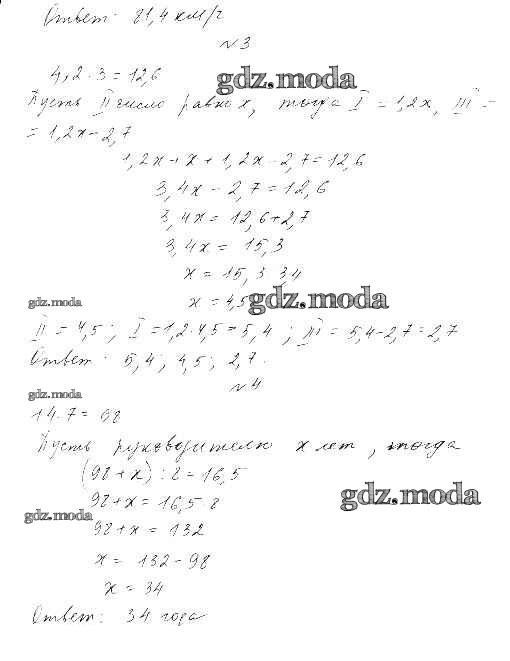 Ответ: 81,4 км/г
№3
4,2·3=12,6
gdz.moda
Пусть II число равно x, тогда I = 1,2x, III =
= 1,2x-2,7
1,2x+x+1,2x-2,7=12,6
3,4x-2,7=12,6
3,4x=12,6+2,7
3,4x=15,3
x=15,3 3,4
gdz.moda
x=4,5
gdz.moda
II=4,5; I=1,2·4,5=5,4; III=5,4-2,7=2,7
Ответ: 5,4; 4,5; 2,7.
№4
gdz.moda
14·7=98
Пусть руководителю x лет, тогда
(98+x):8=16,5
98+x=16,5·8
gdz.moda
gdz.moda
98+x=132
x=132-98
x=34
Ответ: 34 года